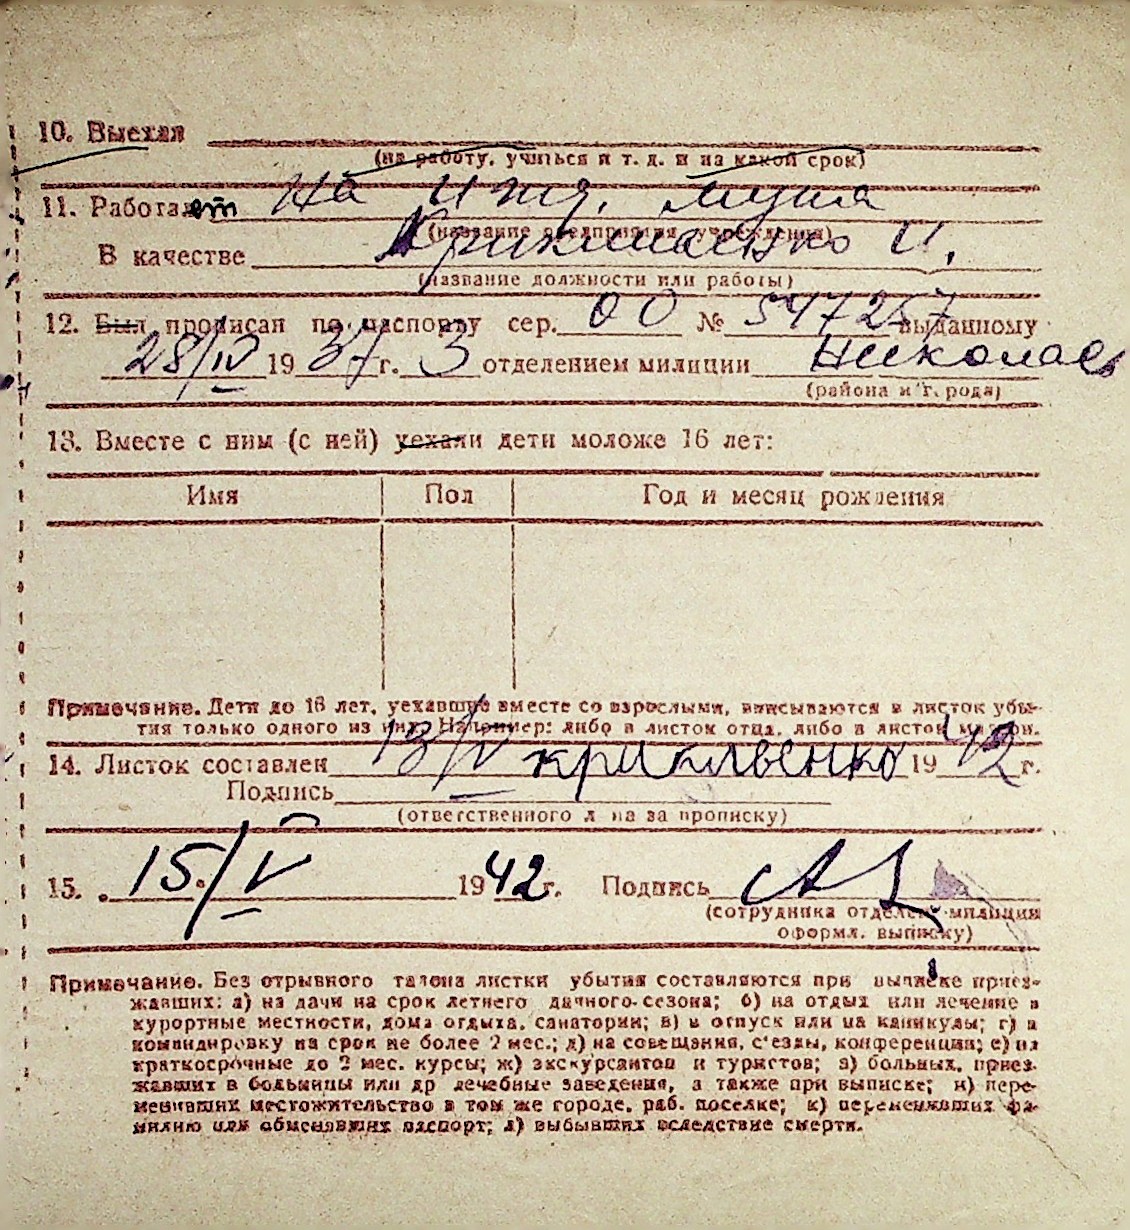 10. Выехал
(на работу, учиться и т. д. и на какой срок)
11. Работает На ижд. мужа
(название предприятия, учреждения)
В качестве И.
(название должности или работы)
12. Был прописан по паспорту сер. 00 № 547257 выданному
28/IV 1937 г. 3 отделением милиции Николаев
(района и г. рода)
13. Вместе с ним (с ней) уехали дети моложе 16 лет:
Имя Пол Год и месяц рождения
Примечание. Дети до 16 лет, уехавшие вместе со взрослыми, вписываются в листок убы-
тия только одного из них. Например: либо в листок отца, либо в листок матери.
14. Листок составлен 13/V 1942 г.
Подпись Крикливенко
(ответственного л на за прописку)
15. 15/V 1942 г. Подпись
(сотрудника отделен. милиции
оформл. выписку)
Примечание. Без отрывного талона листки убытия составляются при выписке приез-
жавших: а) на дачи на срок летнего дачного сезона; б) на отдых или лечение в
курортные местности, дома отдыха, санатории; в) в отпуск или на каникулы; г) в
командировку на срок не более 2 мес.; д) на совещания, с'езды, конференции; е) на
краткосрочные до 2 мес. курсы; ж) экскурсантов и туристов; з) больных, приез-
жавших в больницы или др лечебные заведения, а также при выписке; и) пере-
менивших местожительство в том же городе, раб. поселке; к) переменивших фа-
милию или обменявших паспорт; л) выбывших вследствие смерти.